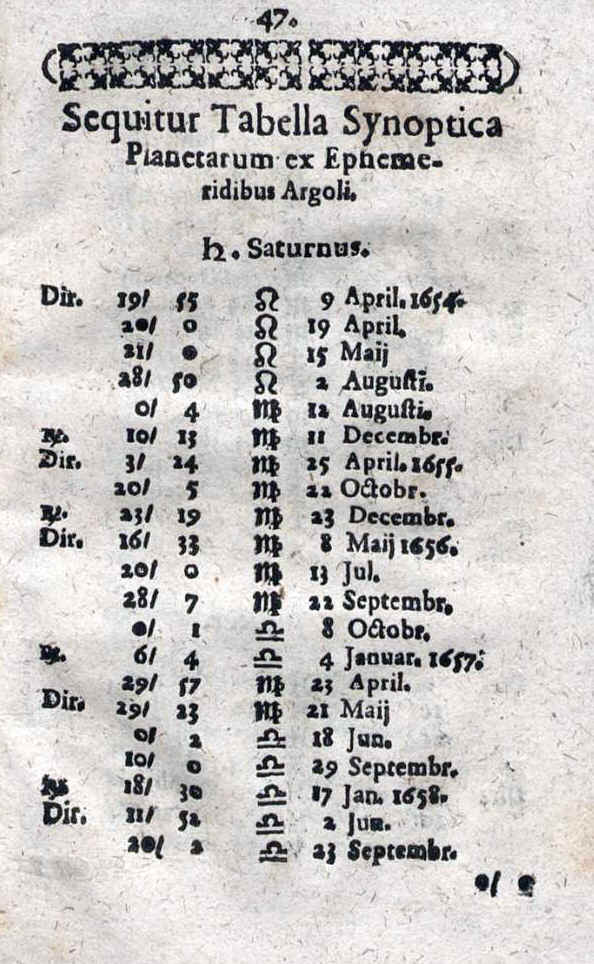 47.
Sequitur Tabella Synoptica
Planetarum ex Epheme-
ridibus Argoli.
♄. Saturnus.
Dir. 19/ 55 ♌ 9 April. 1654.
20/ 0 ♌ 19 April.
21/ 0 ♌ 15 Maij
28/ 50 ♌ 2 Augusti.
0/ 4 ♍ 12 Augusti.
℞. 10/ 13 ♍ 11 Decembr.
Dir. 3/ 24 ♍ 25 April. 1655.
20/ 5 ♍ 22 Octobr.
℞. 23/ 19 ♍ 23 Decembr.
Dir. 16/ 33 ♍ 8 Maij 1656.
20/ 0 ♍ 13 Jul.
28/ 7 ♍ 22 Septembr.
0/ 1 ♎ 8 Octobr.
℞. 6/ 4 ♎ 4 Januar. 1657.
29/ 57 ♍ 23 April.
Dir. 29/ 23 ♍ 21 Maij
0/ 2 ♎ 18 Jun.
10/ 0 ♎ 29 Septembr.
℞. 18/ 30 ♎ 17 Jan. 1658.
Dir. 11/ 52 ♎ 2 Jun.
20/ 2 ♎ 23 Septembr.
0/ 0